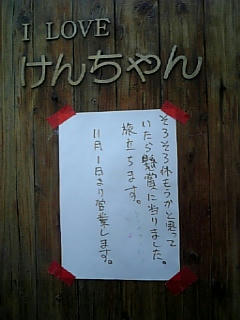 I LOVE
けんちゃん
そろそろ休もうかと思って
いたら懸賞に当りました。
旅立ちます。
11月1日より営業します。